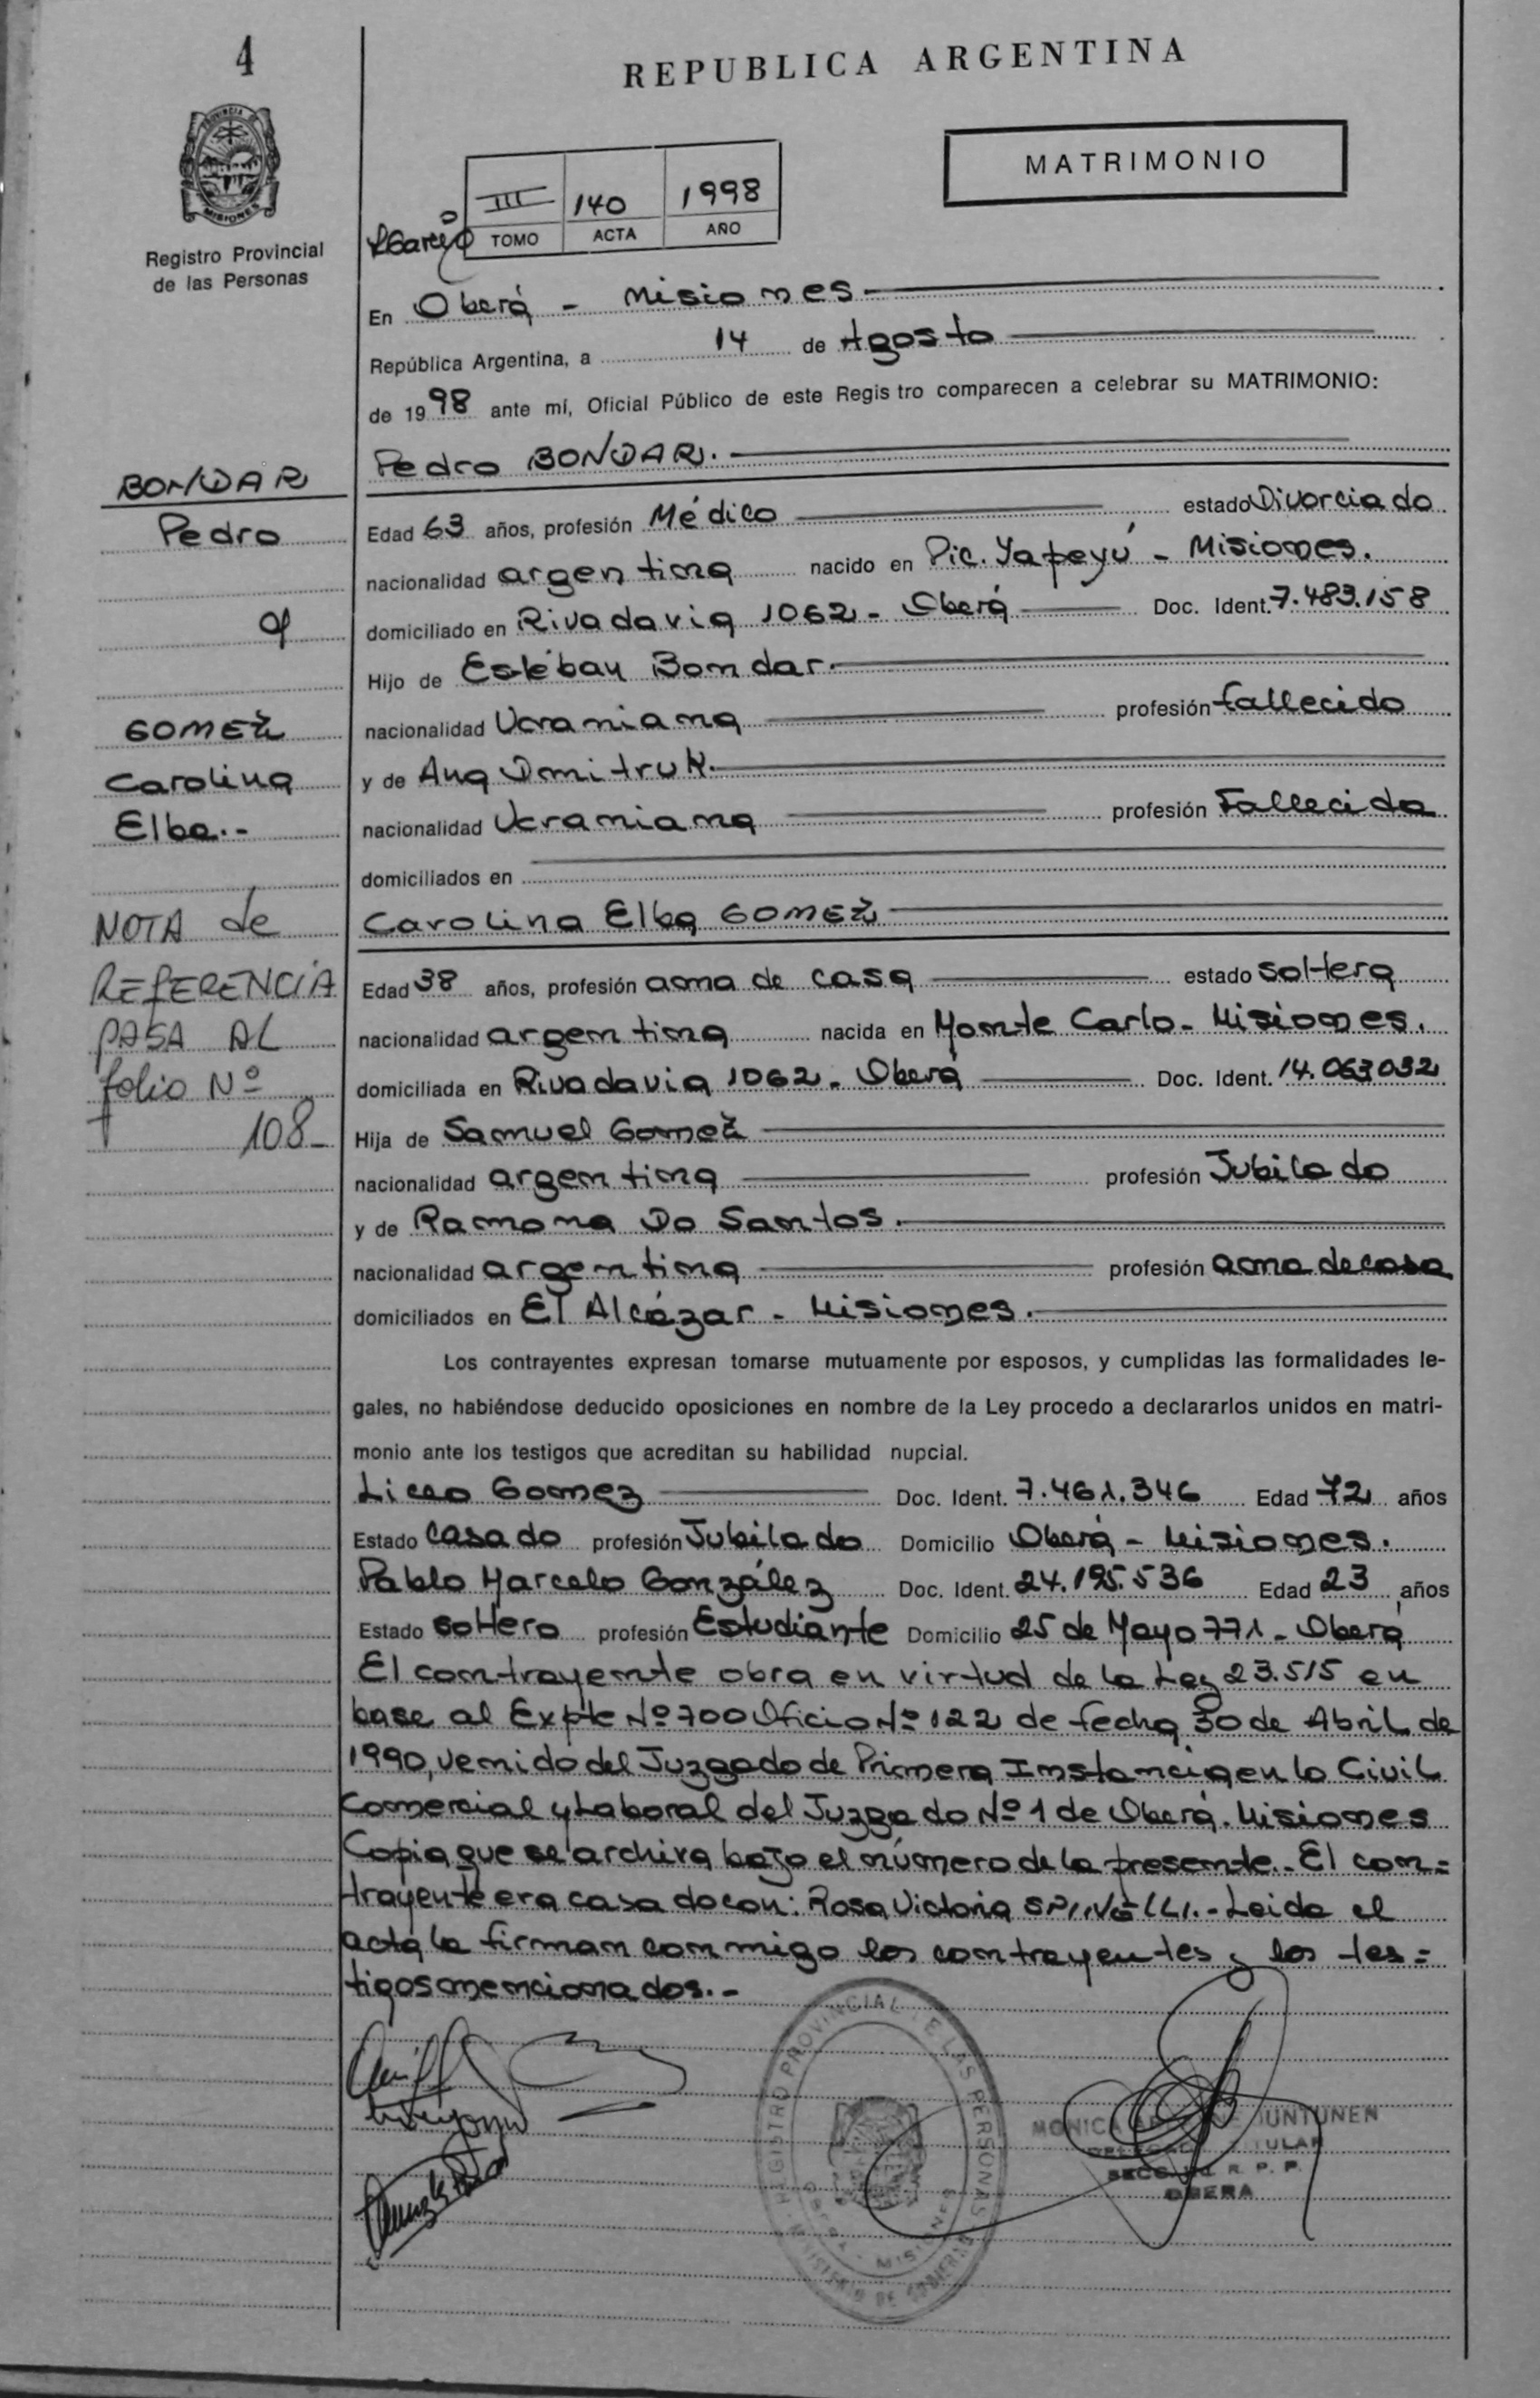 4
REPUBLICA ARGENTINA
MATRIMONIO
PROVINCIA DE
MISIONES
Registro Provincial
de las Personas
III 140 1998
TOMO ACTA AÑO
En Oberá - Misiones
República Argentina, a 14 de Agosto
de 1998 ante mí, Oficial Público de este Registro comparecen a celebrar su MATRIMONIO:
Pedro BONDAR.
BONDAR
Pedro
Edad 63 años, profesión Médico estado Divorciado
nacionalidad argentina nacido en Pic. Yapeyú - Misiones.
domiciliado en Rivadavia 1062 - Oberá Doc. Ident. 7.483.158
Hijo de Estéban Bondar.
GOMEZ
Carolina
Elba.-
nacionalidad Ucraniana profesión fallecido
y de Ana Dmitruk.
nacionalidad Ucraniana profesión Fallecida
domiciliados en
Carolina Elba GOMEZ
NOTA de
REFERENCIA
PASA AL
folio Nº
108-
Edad 38 años, profesión ama de casa estado soltera
nacionalidad argentina nacida en Monte Carlo - Misiones.
domiciliada en Rivadavia 1062 - Oberá Doc. Ident. 14.063.032
Hija de Samuel Gomez
nacionalidad argentina profesión Jubilado
y de Ramona Do Santos.
nacionalidad argentina profesión ama de casa
domiciliados en El Alcázar - Misiones.
Los contrayentes expresan tomarse mutuamente por esposos, y cumplidas las formalidades le-
gales, no habiéndose deducido oposiciones en nombre de la Ley procedo a declararlos unidos en matri-
monio ante los testigos que acreditan su habilidad nupcial.
Gomez Doc. Ident. 7.461.346 Edad 72 años
Estado casado profesión Jubilado Domicilio Oberá - Misiones.
Pablo Marcelo González Doc. Ident. 24.195.536 Edad 23 años
Estado soltero profesión Estudiante Domicilio 25 de Mayo 771 - Oberá
El contrayente obra en virtud de la Ley 23.515 en
base al Expte Nº 700 Oficio Nº 122 de fecha 30 de Abril de
1990, venido del Juzgado de Primera Instancia en lo Civil
Comercial y Laboral del Juzgado Nº 1 de Oberá. Misiones
Copia que se archiva bajo el número de la presente.- El con=
trayente era casado con: Rosa Victoria .- Leida el
acta la firman conmigo los contrayentes y los tes=
tigos mencionados.-
REGISTRO PROVINCIAL DE LAS PERSONAS
OBERA - MISIONES
MINISTERIO DE GOBIERNO
MONICA JUNTUNEN
TITULAR
R. P. P.
OBERA